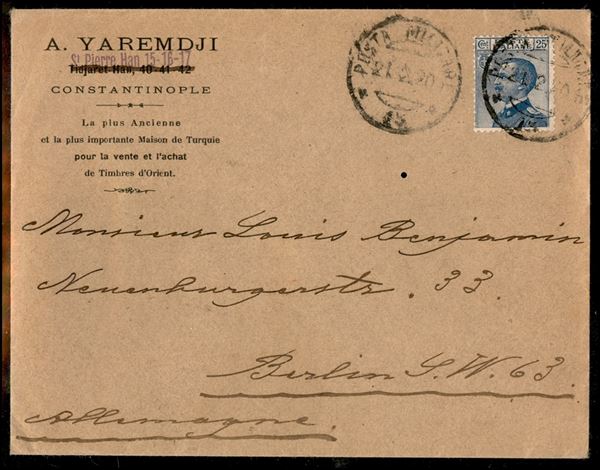 A. YAREMDJI
St Pierre Han 15-16-17
Tidjaret-Han, 40-41-42
CONSTANTINOPLE
La plus Ancienne
et la plus importante Maison de Turquie
pour la vente et l'achat
de Timbres d'Orient.
POSTA MILITARE
15
25
POSTA MILITARE
15
Monsieur Louis Benjamin
Neuenburgerstr. 33.
Berlin S.W. 63.
Allemagne.